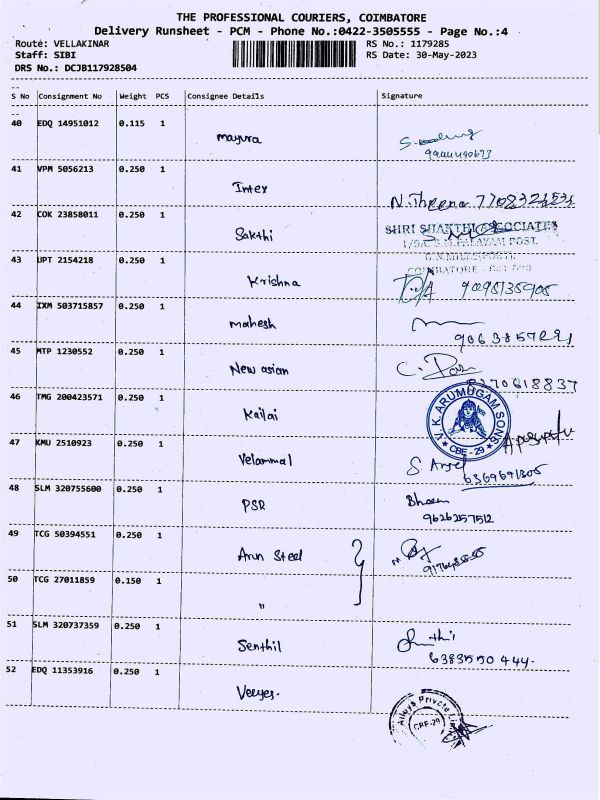 THE PROFESSIONAL COURIERS, COIMBATORE
Delivery Runsheet - PCM - Phone No.:0422-3505555 - Page No.:4
Route: VELLAKINAR
RS No.: 1179285
Staff: SIBI
RS Date: 30-May-2023
DRS No.: DCJB117928504
S No Consignment No Weight PCS Consignee Details Signature
40 EDQ 14951012 0.115 1
Mayura
41 VPM 5056213 0.250 1
Intex
N. Theena
42 COK 23858011 0.250 1
Sakthi
SHRI SHAKTHI ASSOCIATES
43 UPT 2154218 0.250 1
COIMBATORE
Krishna
44 IXM 503715857 0.250 1
Mahesh
45 MTP 1230552 0.250 1
New asian
46 TMG 200423571 0.250 1
Kailai
V. K. ARUMUGAM SONS
CBE-29
47 KMU 2510923 0.250 1
Velammal
48 SLM 320755600 0.250 1
PSR
9626257512
49 TCG 50394551 0.250 1
Arun Steel
50 TCG 27011859 0.150 1
"
51 SLM 320737359 0.250 1
Senthil
6383550444.
52 EDQ 11353916 0.250 1
Veeyes.
Alloys Private
CBE-29